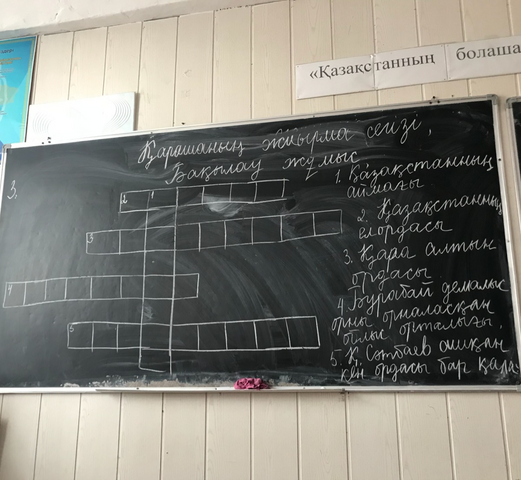 «Қазақстанның болаша
Қарашаның жиырма сегізі,
Бақылау жұмыс
3.
2 1
3
4
5
1. Қазақстанның
аймағы
2. Қазақстанның
елордасы
3. Қара алтын
ордасы
4. Бурабай демалыс
орны орналасқан
облыс орталығы.
5. Қ. Сәтбаев ашқан
кен ордасы бар қала